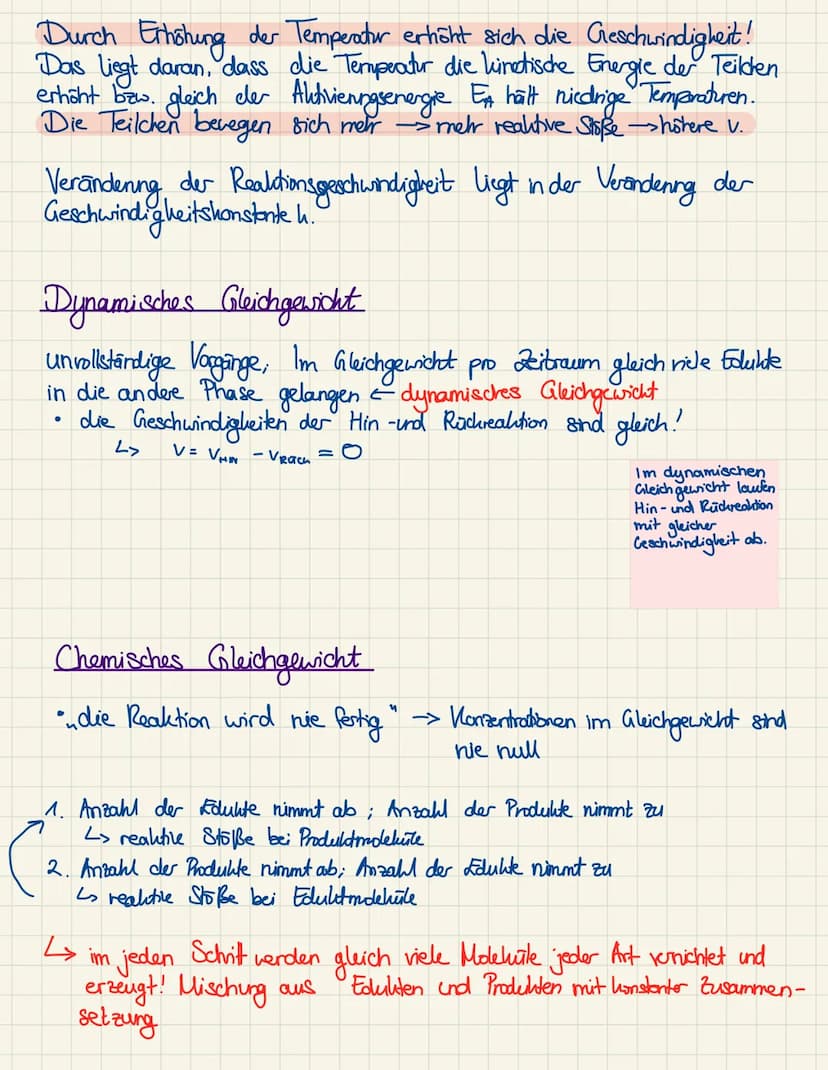 Durch Erhöhung der Temperatur erhöht sich die Geschwindigkeit!
Das liegt daran, dass die Temperatur die kinetische Energie der Teilchen
erhöht bzw. gleich der Aktivierungsenergie EA hält niedrige Temperaturen.
Die Teilchen bewegen sich mehr → mehr reaktive Stöße → höhere v.
Veränderung der Reaktionsgeschwindigkeit liegt in der Veränderung der
Geschwindigkeitskonstante k.
Dynamisches Gleichgewicht
unvollständige Vorgänge, Im Gleichgewicht pro Zeitraum gleich viele Edukte
in die andere Phase gelangen ← dynamisches Gleichgewicht
• die Geschwindigkeiten der Hin -und Rückreaktion sind gleich!
↳ V = VHIN - VRÜCK = 0
Im dynamischen
Gleichgewicht laufen
Hin- und Rückreaktion
mit gleicher
Geschwindigkeit ab.
Chemisches Gleichgewicht
• „die Reaktion wird nie fertig" → Konzentrationen im Gleichgewicht sind
nie null
1. Anzahl der Edukte nimmt ab ; Anzahl der Produkte nimmt zu
↳ reaktive Stöße bei Produktmoleküle
2. Anzahl der Produkte nimmt ab; Anzahl der Edukte nimmt zu
↳ reaktive Stöße bei Eduktmoleküle
↳ im jeden Schritt werden gleich viele Moleküle jeder Art vernichtet und
erzeugt! Mischung aus Edukten und Produkten mit konstanter Zusammen-
setzung